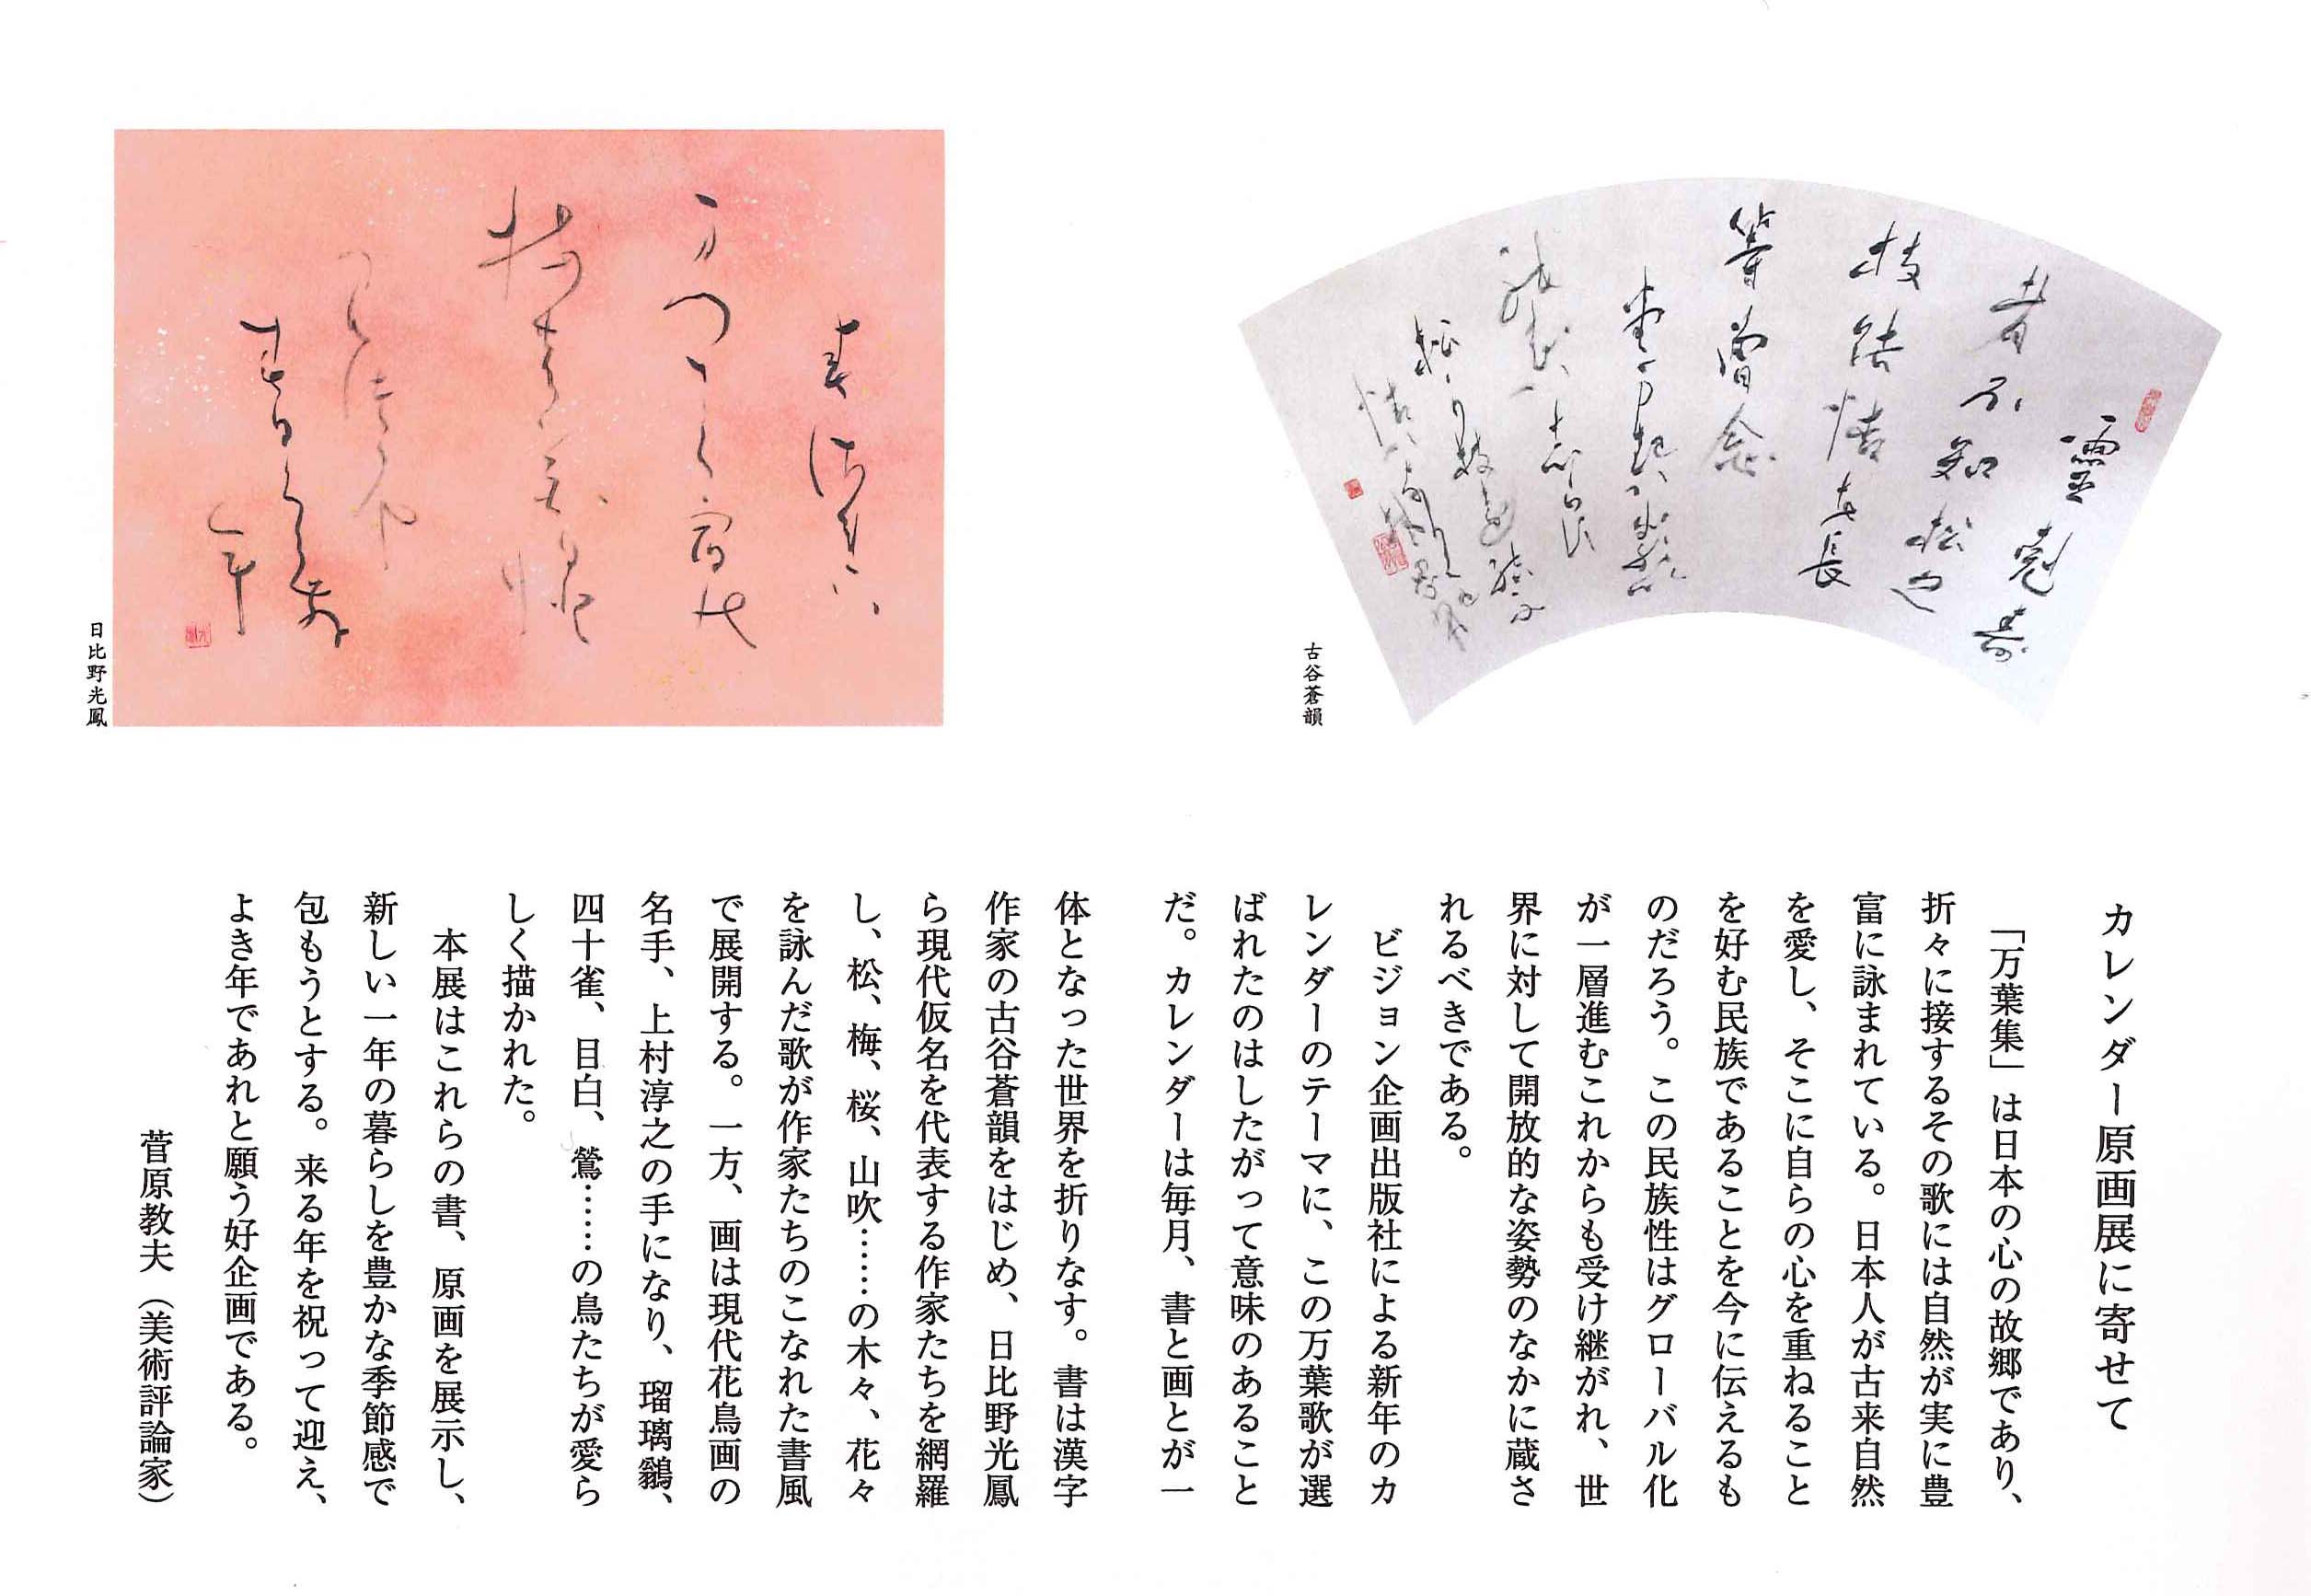 霊剋寿
者不知松之
枝結情者長
等曽念
古谷蒼韻
春佐礼婆
日比野光鳳
カレンダー原画展に寄せて
「万葉集」は日本の心の故郷であり、
折々に接するその歌には自然が実に豊
富に詠まれている。日本人が古来自然
を愛し、そこに自らの心を重ねること
を好む民族であることを今に伝えるも
のだろう。この民族性はグローバル化
が一層進むこれからも受け継がれ、世
界に対して開放的な姿勢のなかに蔵さ
れるべきである。
ビジョン企画出版社による新年のカ
レンダーのテーマに、この万葉歌が選
ばれたのはしたがって意味のあること
だ。カレンダーは毎月、書と画とが一
体となった世界を折りなす。書は漢字
作家の古谷蒼韻をはじめ、日比野光鳳
ら現代仮名を代表する作家たちを網羅
し、松、梅、桜、山吹……の木々、花々
を詠んだ歌が作家たちのこなれた書風
で展開する。一方、画は現代花鳥画の
名手、上村淳之の手になり、瑠璃鶲、
四十雀、目白、鶯……の鳥たちが愛ら
しく描かれた。
本展はこれらの書、原画を展示し、
新しい一年の暮らしを豊かな季節感で
包もうとする。来る年を祝って迎え、
よき年であれと願う好企画である。
菅原教夫（美術評論家）